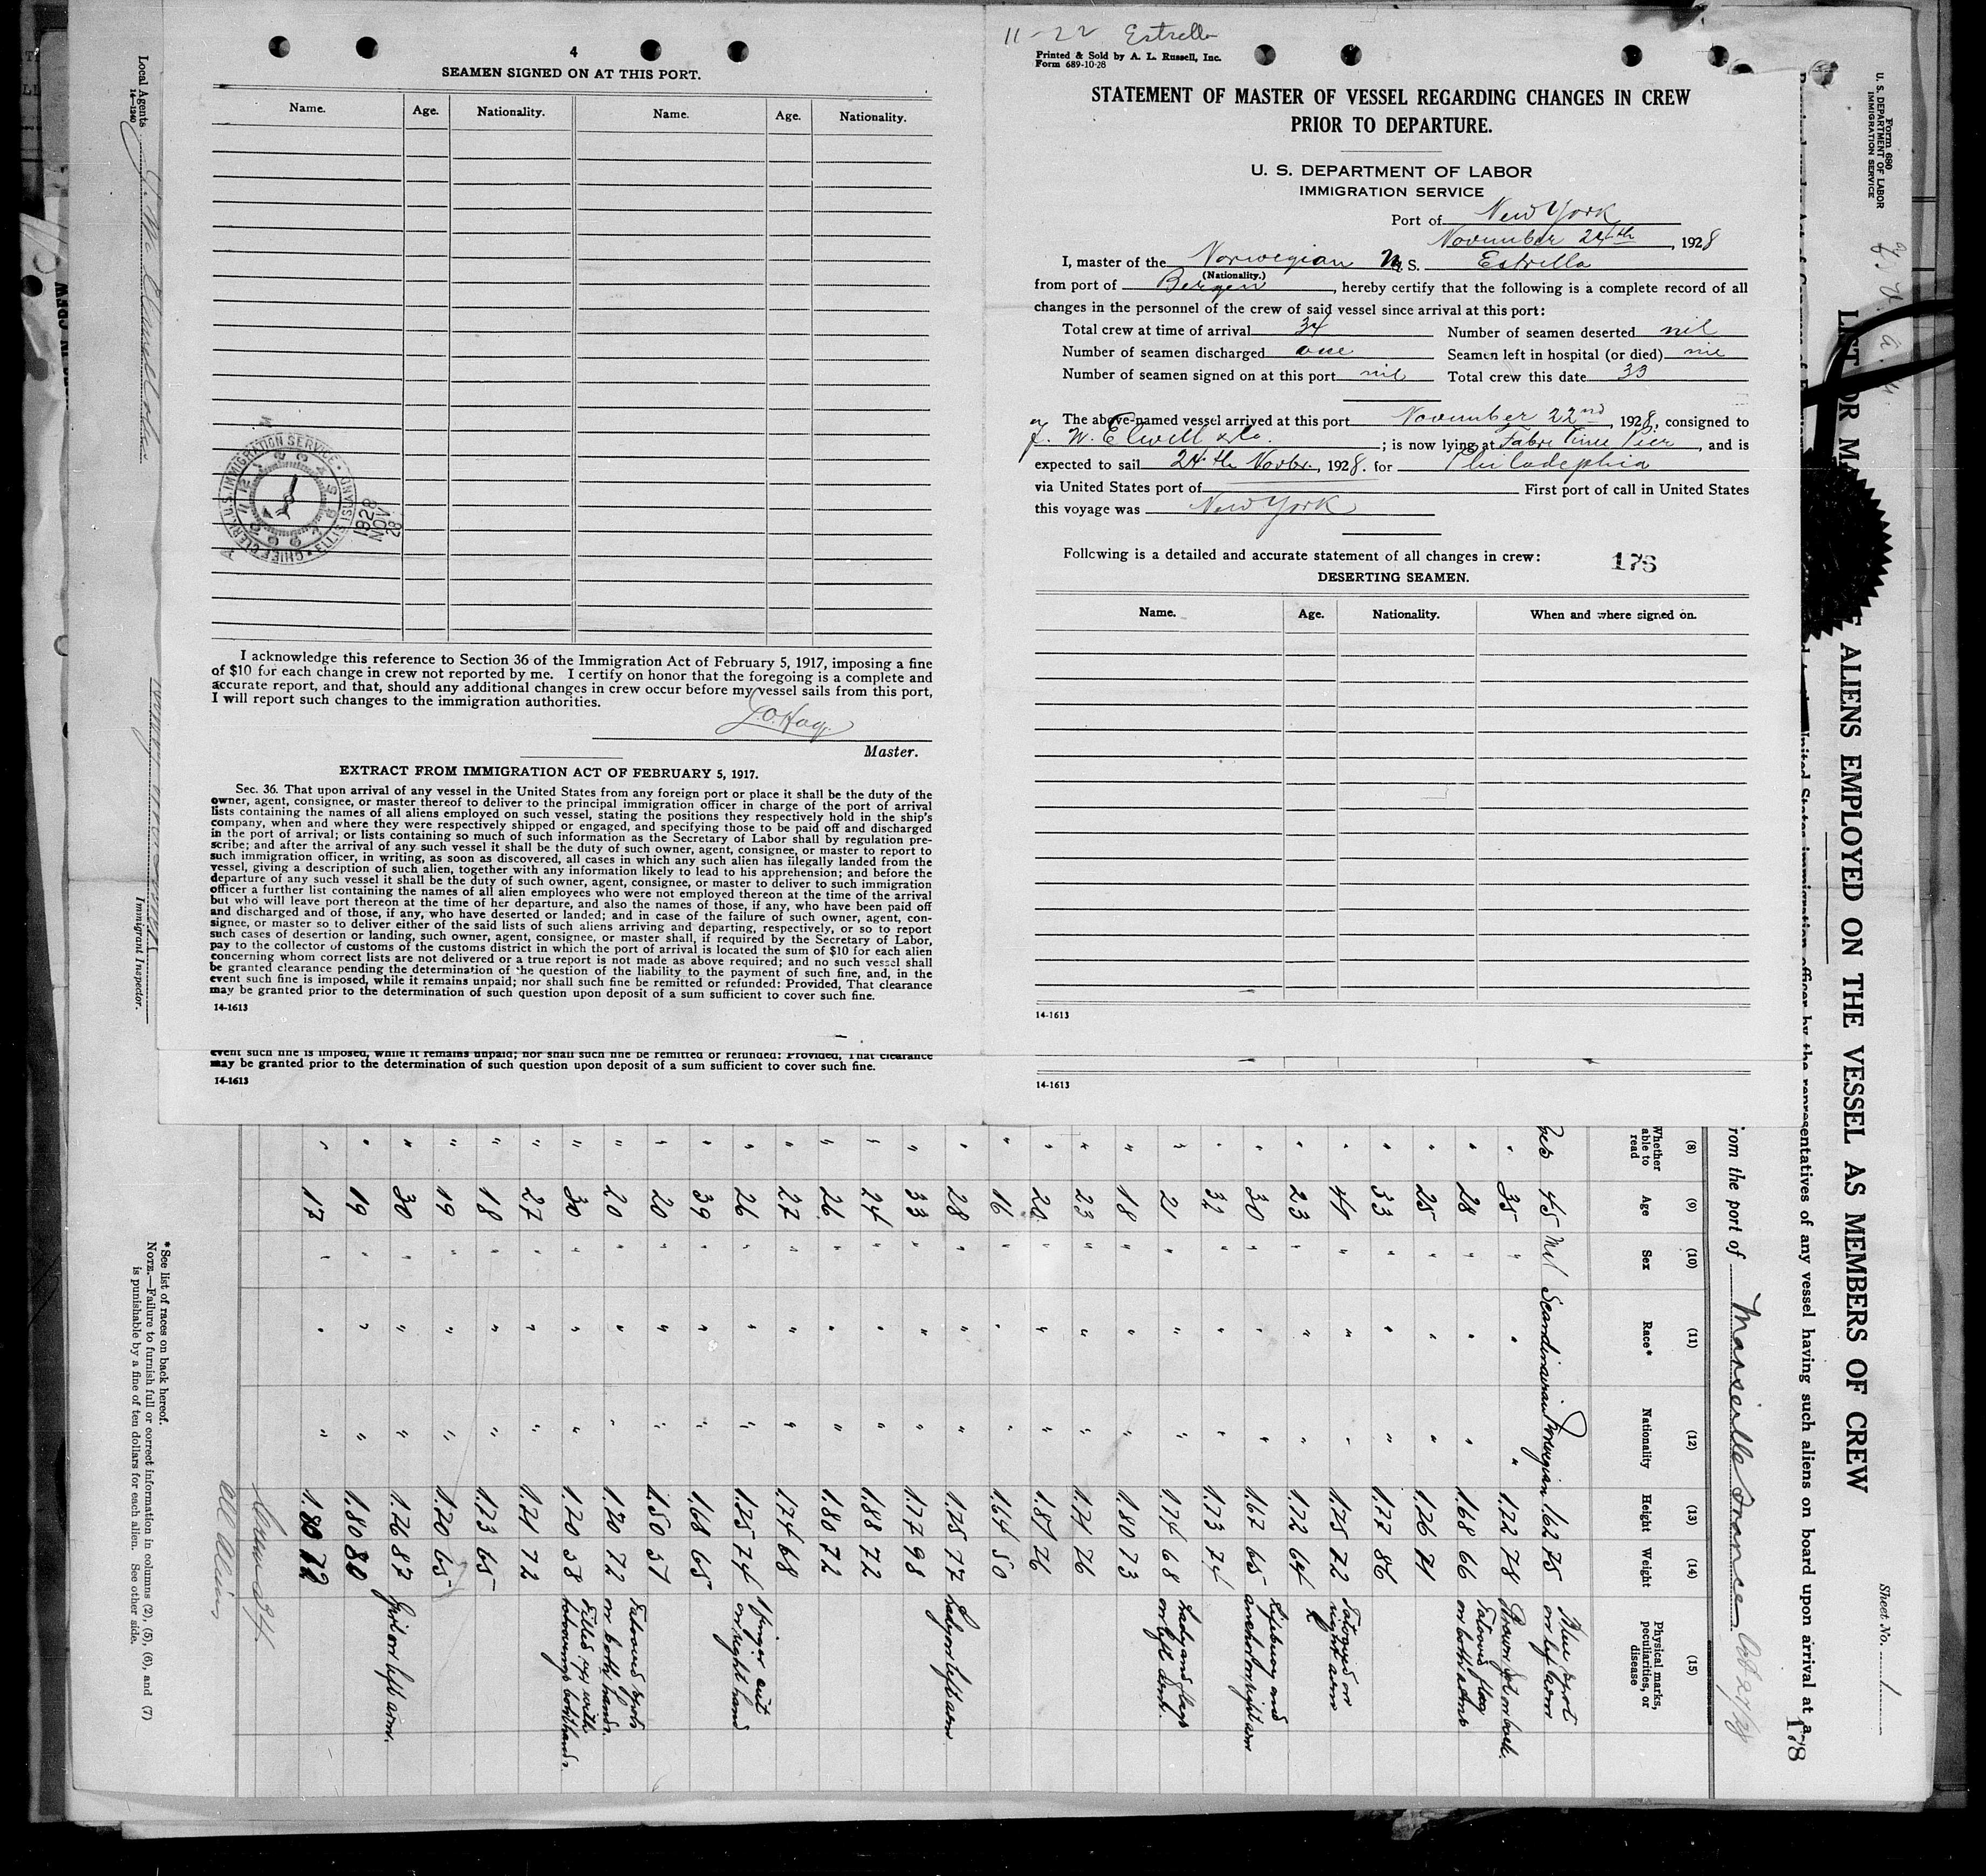 4
SEAMEN SIGNED ON AT THIS PORT.
Name. Age. Nationality. Name. Age. Nationality.
CHIEF CLERK, U.S. IMMIGRATION SERVICE • ELLIS ISLAND •
1928
NOV
23
I acknowledge this reference to Section 36 of the Immigration Act of February 5, 1917, imposing a fine
of $10 for each change in crew not reported by me. I certify on honor that the foregoing is a complete and
accurate report, and that, should any additional changes in crew occur before my vessel sails from this port,
I will report such changes to the immigration authorities.
Master.
EXTRACT FROM IMMIGRATION ACT OF FEBRUARY 5, 1917.
Sec. 36. That upon arrival of any vessel in the United States from any foreign port or place it shall be the duty of the
owner, agent, consignee, or master thereof to deliver to the principal immigration officer in charge of the port of arrival
lists containing the names of all aliens employed on such vessel, stating the positions they respectively hold in the ship's
company, when and where they were respectively shipped or engaged, and specifying those to be paid off and discharged
in the port of arrival; or lists containing so much of such information as the Secretary of Labor shall by regulation pre-
scribe; and after the arrival of any such vessel it shall be the duty of such owner, agent, consignee, or master to report to
such immigration officer, in writing, as soon as discovered, all cases in which any such alien has illegally landed from the
vessel, giving a description of such alien, together with any information likely to lead to his apprehension; and before the
departure of any such vessel it shall be the duty of such owner, agent, consignee, or master to deliver to such immigration
officer a further list containing the names of all alien employees who were not employed thereon at the time of the arrival
but who will leave port thereon at the time of her departure, and also the names of those, if any, who have been paid off
and discharged and of those, if any, who have deserted or landed; and in case of the failure of such owner, agent, con-
signee, or master so to deliver either of the said lists of such aliens arriving and departing, respectively, or so to report
such cases of desertion or landing, such owner, agent, consignee, or master shall, if required by the Secretary of Labor,
pay to the collector of customs of the customs district in which the port of arrival is located the sum of $10 for each alien
concerning whom correct lists are not delivered or a true report is not made as above required; and no such vessel shall
be granted clearance pending the determination of the question of the liability to the payment of such fine, and, in the
event such fine is imposed, while it remains unpaid; nor shall such fine be remitted or refunded: Provided, That clearance
may be granted prior to the determination of such question upon deposit of a sum sufficient to cover such fine.
14-1613
event such fine is imposed, while it remains unpaid; nor shall such fine be remitted or refunded: Provided, That clearance
may be granted prior to the determination of such question upon deposit of a sum sufficient to cover such fine.
14-1613
11-22 Estrella
Printed & Sold by A. L. Russell, Inc.
Form 689-10-28
STATEMENT OF MASTER OF VESSEL REGARDING CHANGES IN CREW
PRIOR TO DEPARTURE.
U. S. DEPARTMENT OF LABOR
IMMIGRATION SERVICE
Port of New York
November 24th, 1928
I, master of the Norwegian M. S. Estrella
(Nationality.)
from port of Bergen, hereby certify that the following is a complete record of all
changes in the personnel of the crew of said vessel since arrival at this port:
Total crew at time of arrival 34 Number of seamen deserted nil
Number of seamen discharged one Seamen left in hospital (or died) nil
Number of seamen signed on at this port nil Total crew this date 33
The above-named vessel arrived at this port November 22nd, 1928, consigned to
J. W. Elwell & Co.; is now lying at Fabre Line Pier, and is
expected to sail 24th Novbr., 1928. for Philadephia
via United States port of First port of call in United States
this voyage was New York
Following is a detailed and accurate statement of all changes in crew: 178
DESERTING SEAMEN.
Name. Age. Nationality. When and where signed on.
14-1613
14-1613
Form 680
U. S. DEPARTMENT OF LABOR
IMMIGRATION SERVICE
Sheet No. 1
ALIENS EMPLOYED ON THE VESSEL AS MEMBERS OF CREW
United States immigration officer by the representatives of any vessel having such aliens on board upon arrival at a
178
rom the port of Marseille France Oct 27/28
(8) (9) (10) (11) (12) (13) (14) (15)
Whether able to read Age Sex Race* Nationality Height Weight Physical marks, peculiarities, or disease
yes 45 Scandinavian Norwegian 162 75 Blue spot on left arm
" 35 " " " 1.72 78
28 " " " 1.68 66
25 " " " 1.76 71
33 " " " 1.77 86
41 " " " 1.75 72 Tatooed on right arm
23 " " " 1.72 64
30 " " " 1.67 65
32 " " " 1.73 74
21 " " " 1.74 68 Lady and flags on left
18 " " " 1.80 73
23 " " " 1.71 76
20 " " " 1.87 76
16 " " " 1.64 50
28 " " " 1.75 77 Lady on left arm
33 " " " 1.77 98
24 " " " 1.88 72
26 " " " 1.80 72
27 " " " 1.74 68
26 " " " 1.75 74 1 finger cut on right hand
39 " " " 1.68 65
20 " " " 1.50 57
20 " " " 1.70 72 on both hands
30 " " " 1.70 58
27 " " " 1.71 72
18 " " " 1.73 65
19 " " " 1.70 65
30 " " " 1.76 87 Girl on left arm.
19 " " " 1.80 80
17 " " " 1.80 72
Crew 34.
All aliens
*See list of races on back hereof.
NOTE.—Failure to furnish full or correct information in columns (2), (5), (6), and (7)
is punishable by a fine of ten dollars for each alien. See other side.
Local Agents
14—1240
Immigrant Inspector.